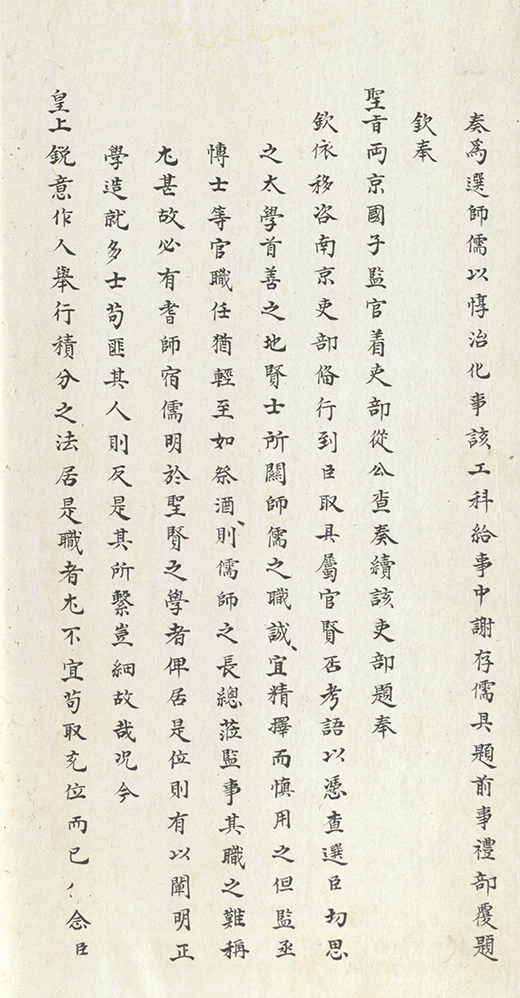 奏爲選師儒以惇治化事該工科給事中謝存儒具題前事禮部覆題
欽奉
聖旨両京國子監官着吏部從公查奏續該吏部題奉
欽依移咨南京吏部俻行到臣取具屬官賢否考語以憑查選臣切思
之太學首善之地賢士所關師儒之職誠宜精擇而慎用之但監丞
愽士等官職任猶輕至如祭酒則儒師之長總蒞監事其職之難稱
尤甚故必有耆師宿儒明於聖賢之學者俾居是位則有以闡明正
學造就多士苟匪其人則反是其所繫豈細故哉况今
皇上銳意作人舉行積分之法居是職者尤不宜苟取充位而已念臣